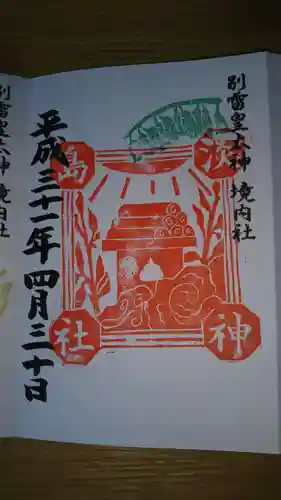 別雷皇太神 境内社
淡
島
神
社
平成三十一年四月三十日
別雷皇太神 境内社